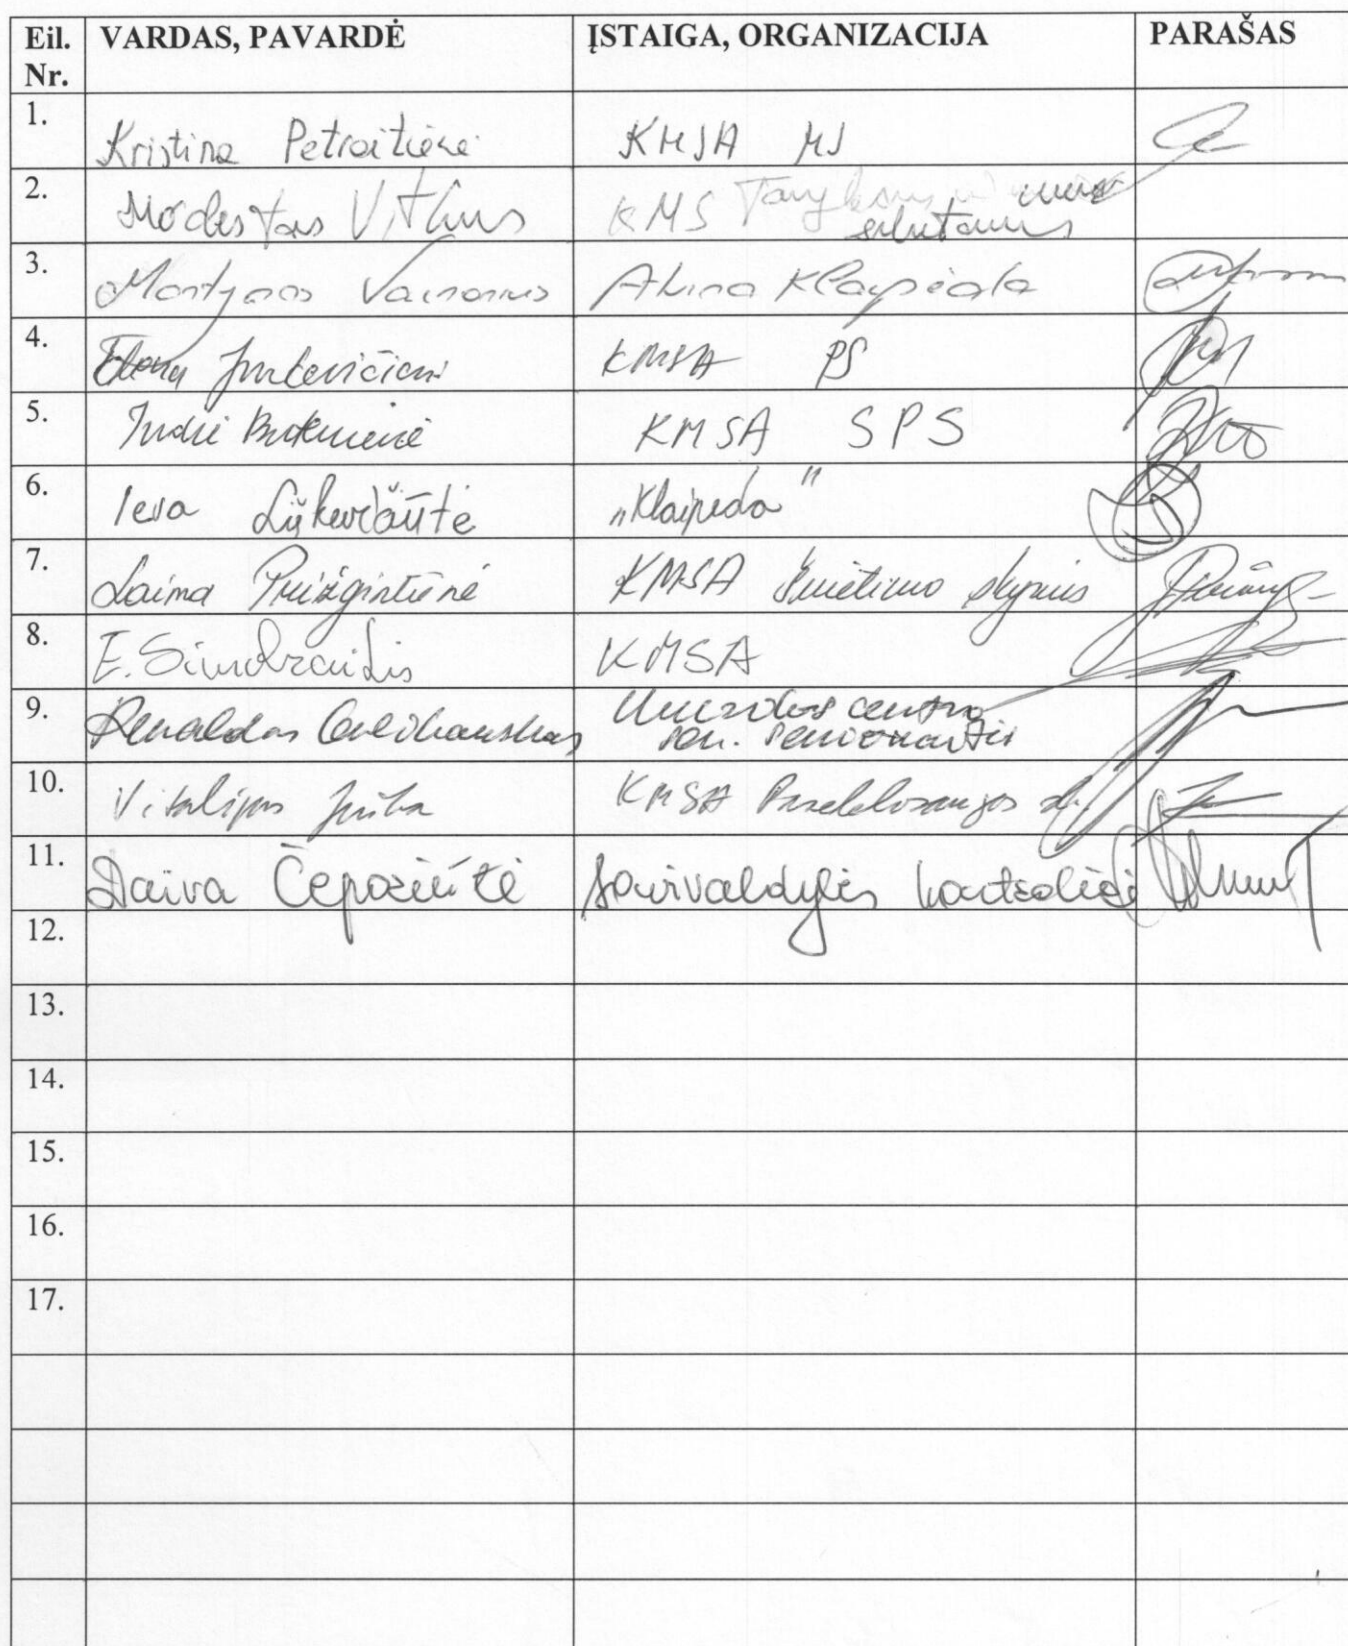 Eil. Nr. VARDAS, PAVARDĖ ĮSTAIGA, ORGANIZACIJA PARAŠAS
1. Kristina Petraitienė KMSA
2. Modestas Vitkus KMS
sekretorius
3. Martynas Vainorius Atvira Klaipėda
4. KMSA PS
5. Indrė Butenienė KMSA SPS
6. Ieva „Klaipėda"
7. Laima Prižgintienė KMSA Švietimo skyrius
8. E. Simokaitis KMSA
9. Renaldas centro
sen. seniūnaitis
10. Vitalijus Juška KMSA
11. Daiva Čeporiūtė Savivaldybės kontrolierė
12.
13.
14.
15.
16.
17.